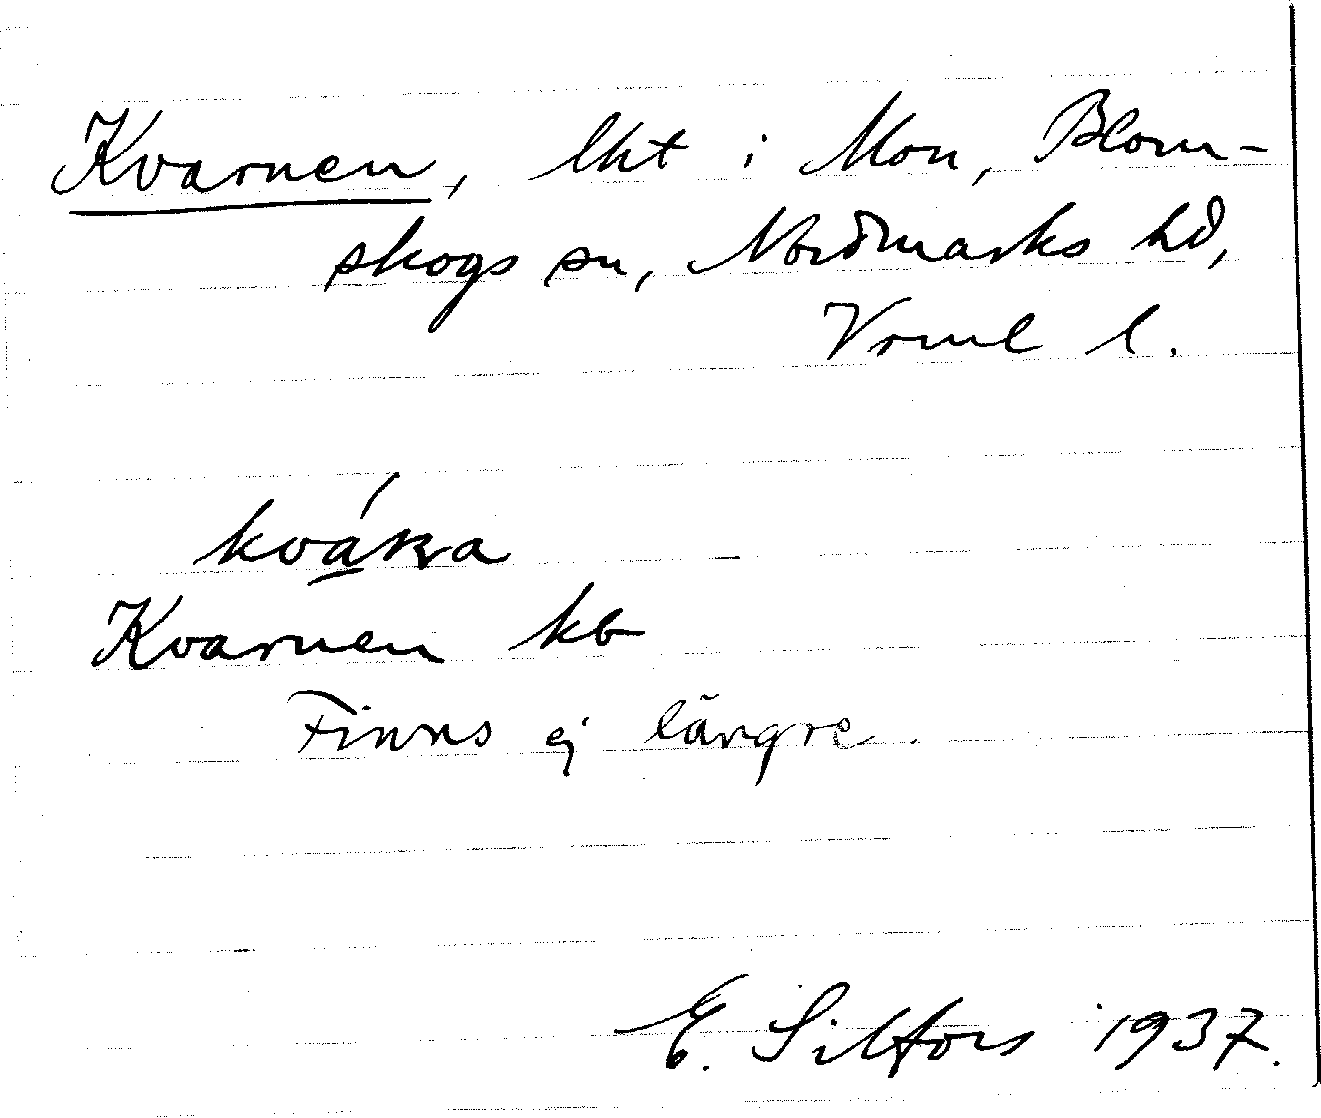 Kvarnen, lht i Mon, Blom-
skogs sn, Nordmarks hd,
Vrml l.
Kvarnen kb
Finns ej längre.
E. Silfors 1937.